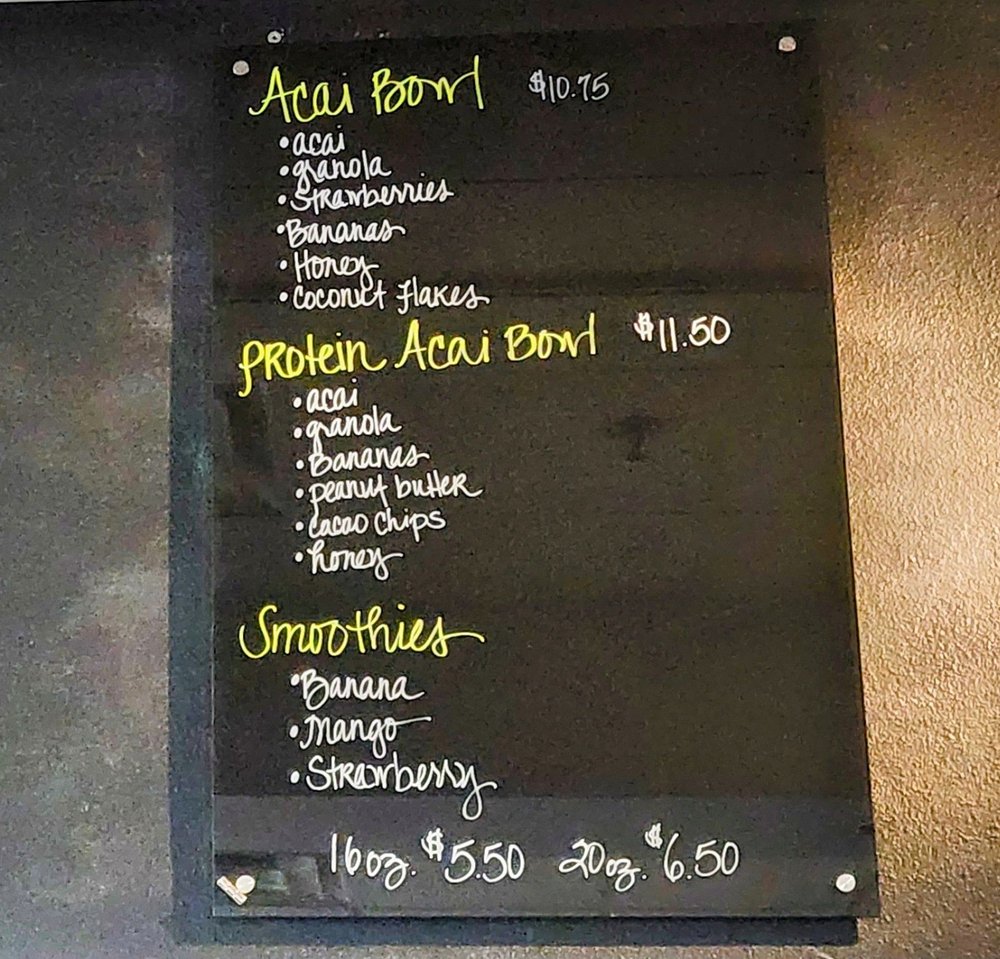 Acai Bowl $10.75
• acai
• granola
• Strawberries
• Bananas
• Honey
• Coconut Flakes
Protein Acai Bowl $11.50
• acai
• granola
• Bananas
• peanut butter
• cacao chips
• honey
Smoothies
• Banana
• Mango
• Strawberry
16oz. $5.50 20oz. $6.50